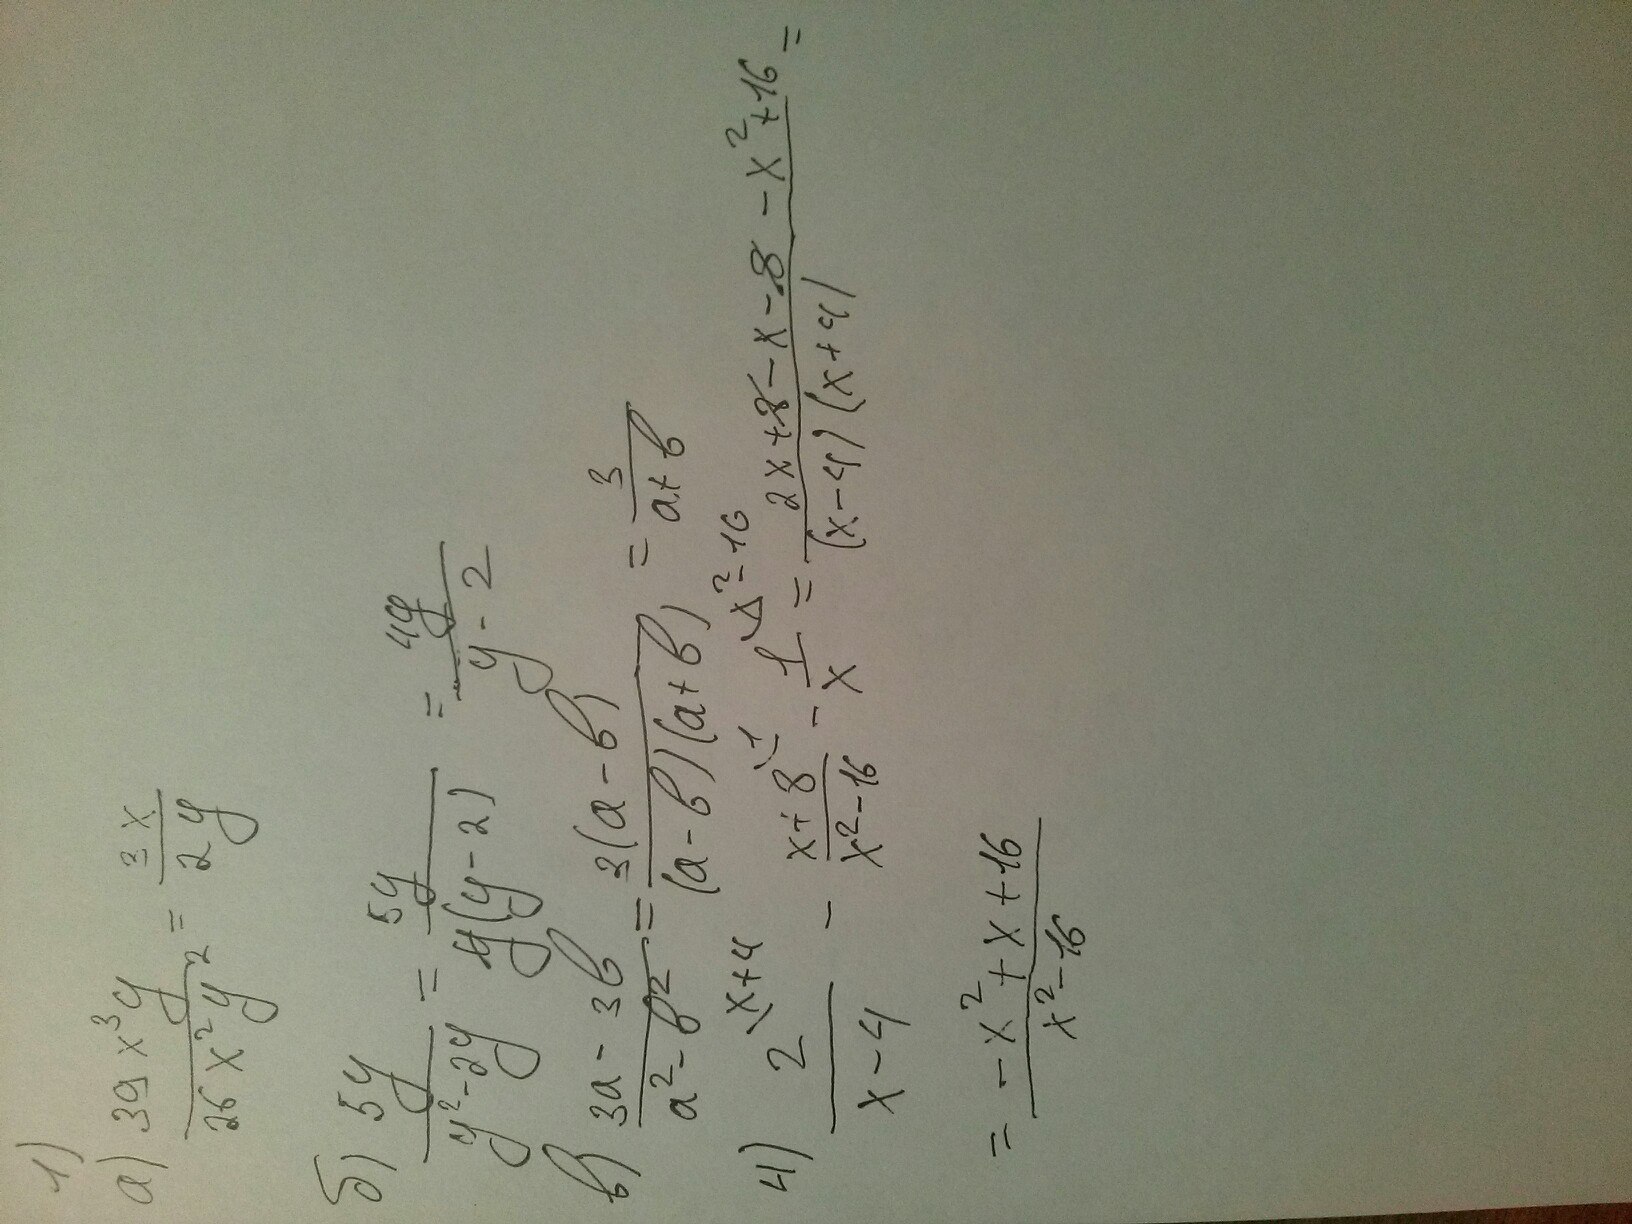 1)
а) 39x³y / 26x²y² = 3x / 2y
б) 5y / y²-2y = 5y / y(y-2) = 4y / y-2
в) 3a-3b / a²-b² = 3(a-b) / (a-b)(a+b) = 3 / a+b
4) 2\x+4 / x-4 - x+8\1 / x²-16 - 1\x²-16 / x = 2x+8-x-8-x²+16 / (x-4)(x+4) =
= -x²+x+16 / x²-16